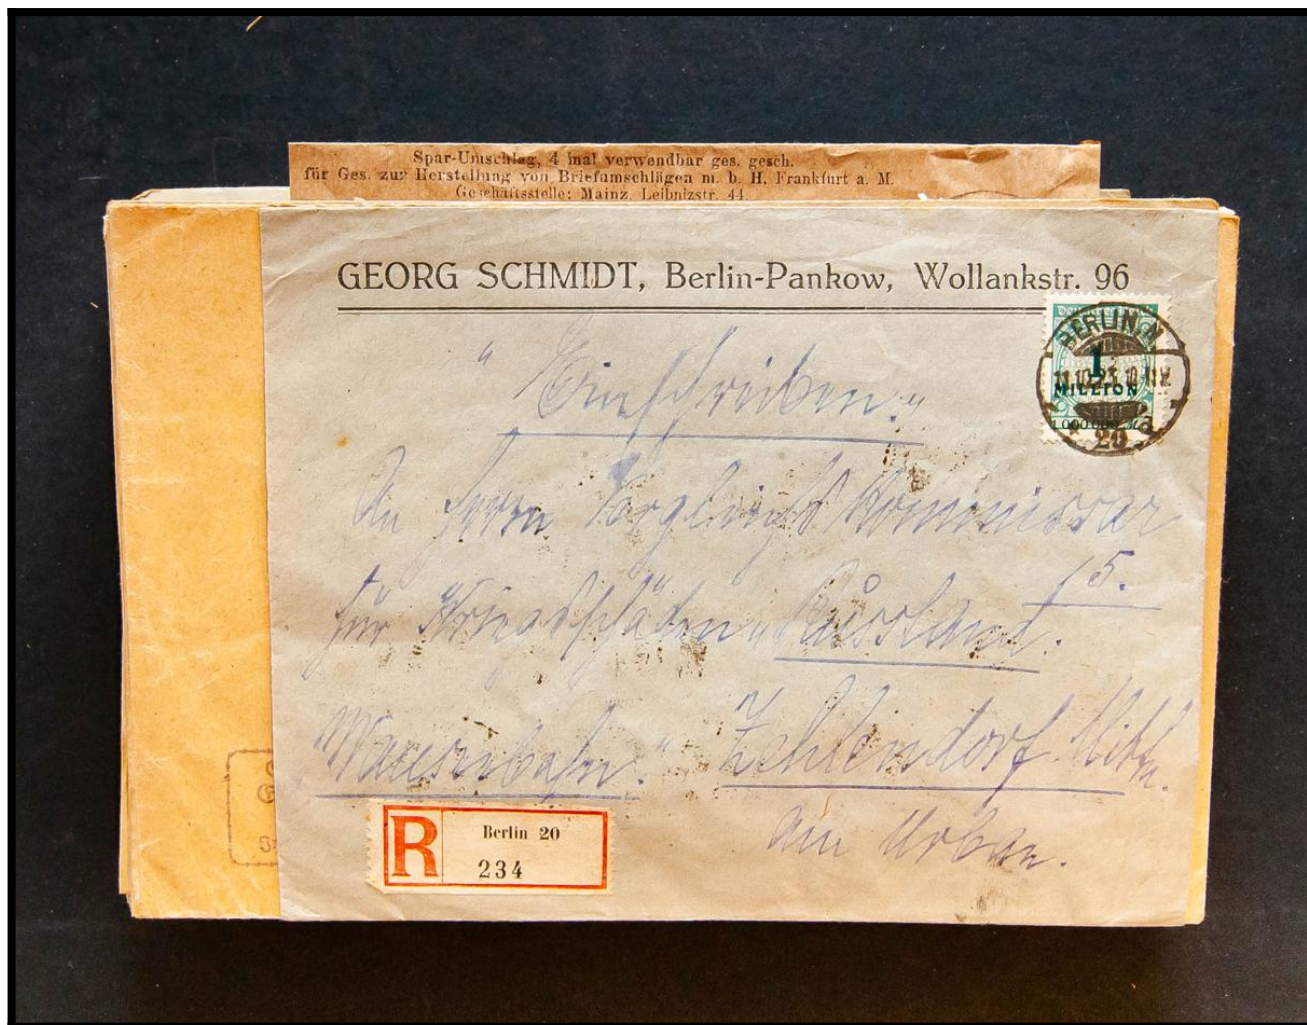 Spar-Umschlag, 4 mal verwendbar ges. gesch.
für Ges. zur Herstellung von Briefumschlägen m. b. H. Frankfurt a. M.
Geschäftsstelle: Mainz, Leibnizstr. 44.
GEORG SCHMIDT, Berlin-Pankow, Wollankstr. 96
BERLIN N
1
MILLION
20
a
"Einschreiben."
An Herrn Vergleichs Kommissar
für Kriegsschäden "Russland.
15.
Zehlendorf. Mitte.
am Urban.
R
Berlin 20
234